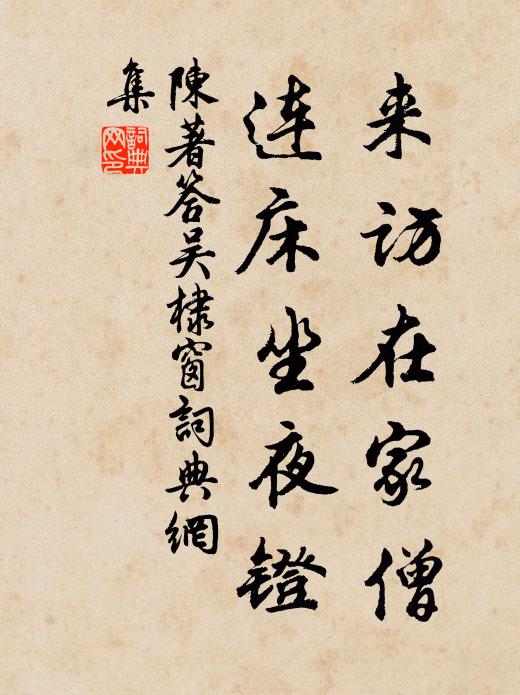 来访在家僧
连床坐夜镫
陳著答吴棣窗詞典網
集
詞典网印